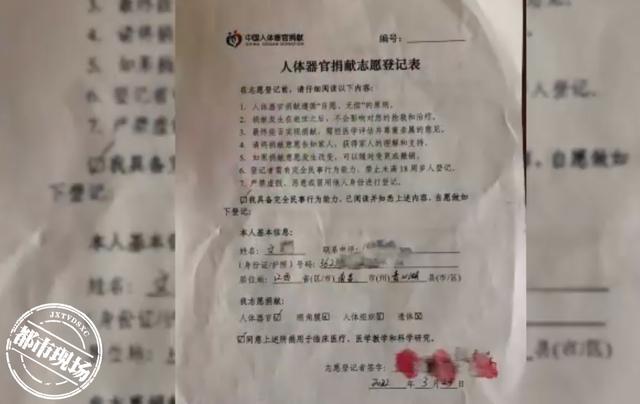 中国人体器官捐献
CHINA ORGAN DONATION
编号:
人体器官捐献志愿登记表
在志愿登记前，请仔细阅读以下内容:
1. 人体器官捐献遵循"自愿、无偿"的原则。
2. 捐献发生在逝世之后，不会影响对您的抢救和治疗。
3. 最终能否实现捐献，需经医学评估并尊重亲属的意见。
4. 请将捐献意愿告知家人，获得家人的理解和支持。
5. 如果捐献意愿发生改变，可以随时变更或撤销。
6. 登记者需有完全民事行为能力，禁止未满18周岁人登记。
7. 严禁虚假、恶意或冒用他人身份进行登记。
我具备完全民事行为能力，已阅读并知悉上述内容，自愿做如
下登记:
本人基本信息:
姓名: 文 联系电话:
(身份证/护照)号码: 362
居住地: 江西 省(区/市) 南昌 市(州) 青山湖 县(市/区)
我志愿捐献:
人体器官 眼角膜 人体组织 遗体
同意上述捐献用于临床医疗、医学教学和科学研究。
志愿登记者签字:
2022 年 3 月 日
JXTVDSXC
都市现场